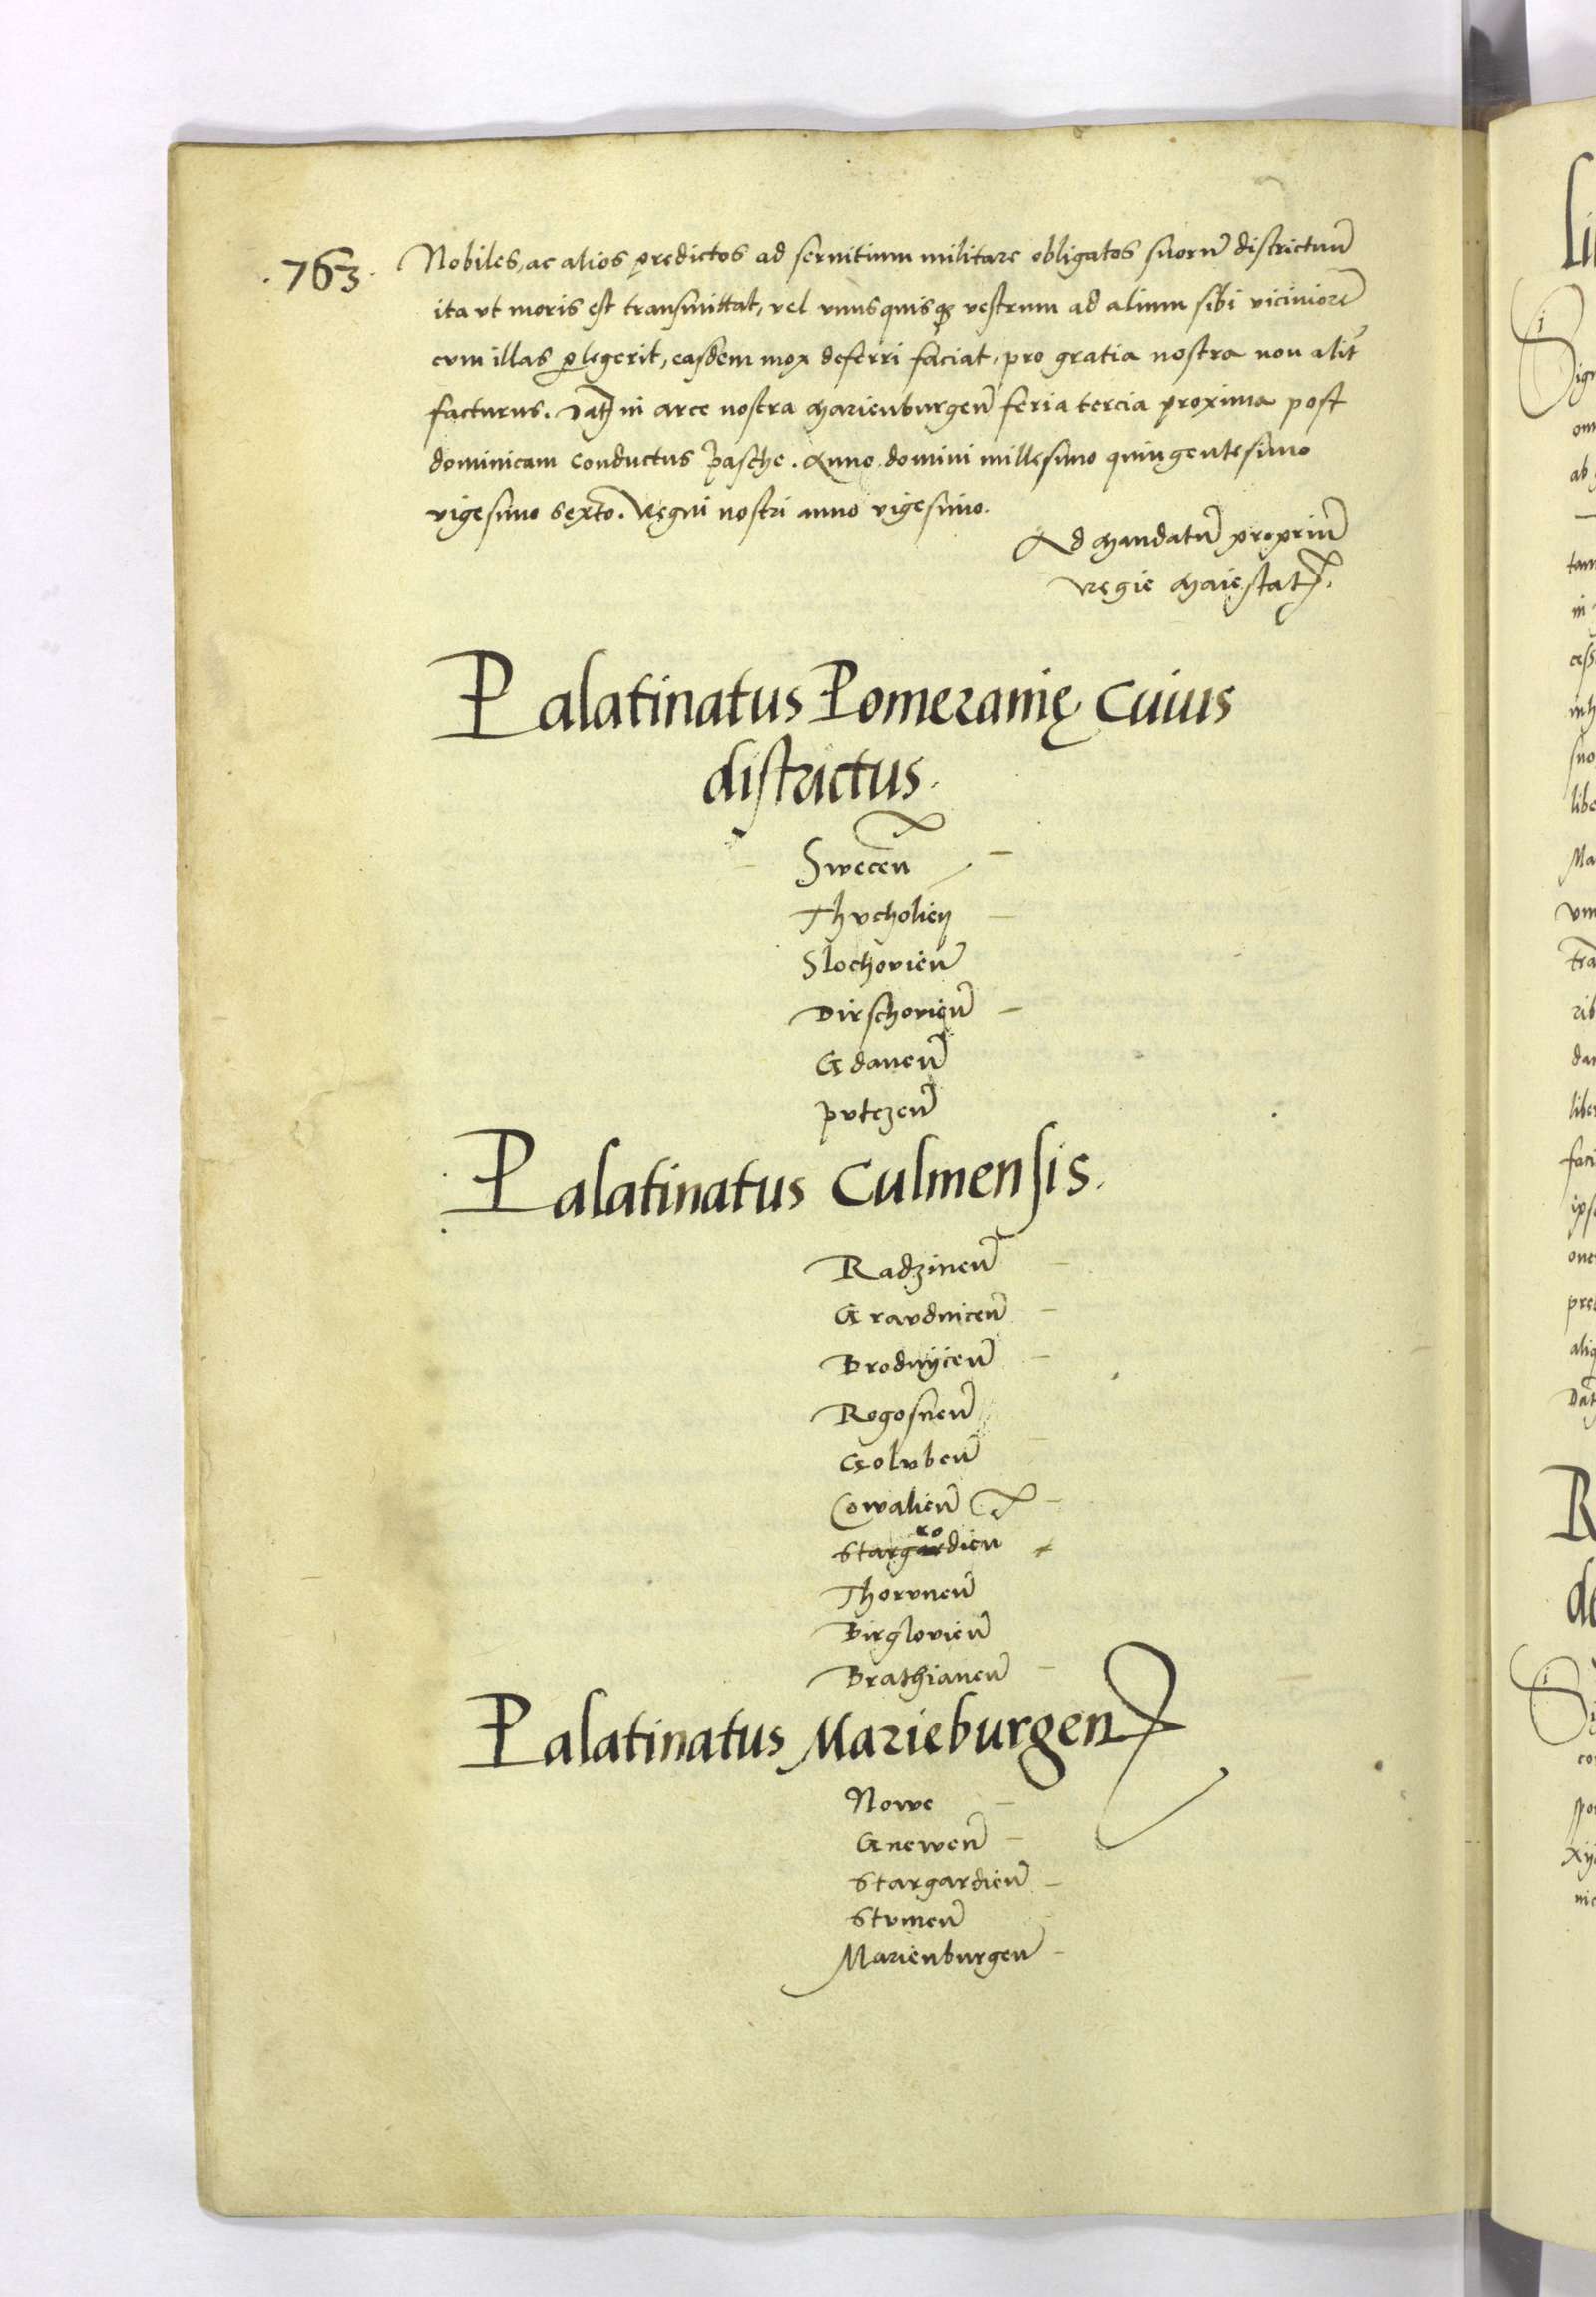 .763.
Nobiles, ac alios predictos ad seruitium militare obligatos suorũ districtuũ
ita vt moris est transmittat, vel vnusquisqȝ vestrum ad alium sibi viciniorẽ
cvm illas ꝑlegerit, easdem mox deferri faciat, pro gratia nostra non alit̃
facturus. Datꝭ in arce nostra Marienburgen̄ feria tercia proxima post
dominicam conductus Pasche. Anno domini millesimo quingentesimo
vigesimo sexto. Regni nostri anno vigesimo.
Ad Mandatũ propriũ
Regie Maiestatꝭ.
Palatinatus Pomeranię Cuius
districtus.
Swecen̄
Thvcholien̄
Slochovien̄
Dirschovien̄
Gdanen̄
Pvtczen̄
Palatinatus Culmensis.
Radzinen̄
Gravdnicen̄
Brodnijcen̄
Rogosnen̄
Golvben̄
Cowalien̄
ro
Stargardien
Thorvnen̄
Birglovien̄
Brathianen̄
Palatinatus Marieburgen̄
Nowe
Gnewen̄
Stargardien̄
Stvmen̄
Marienburgen̄